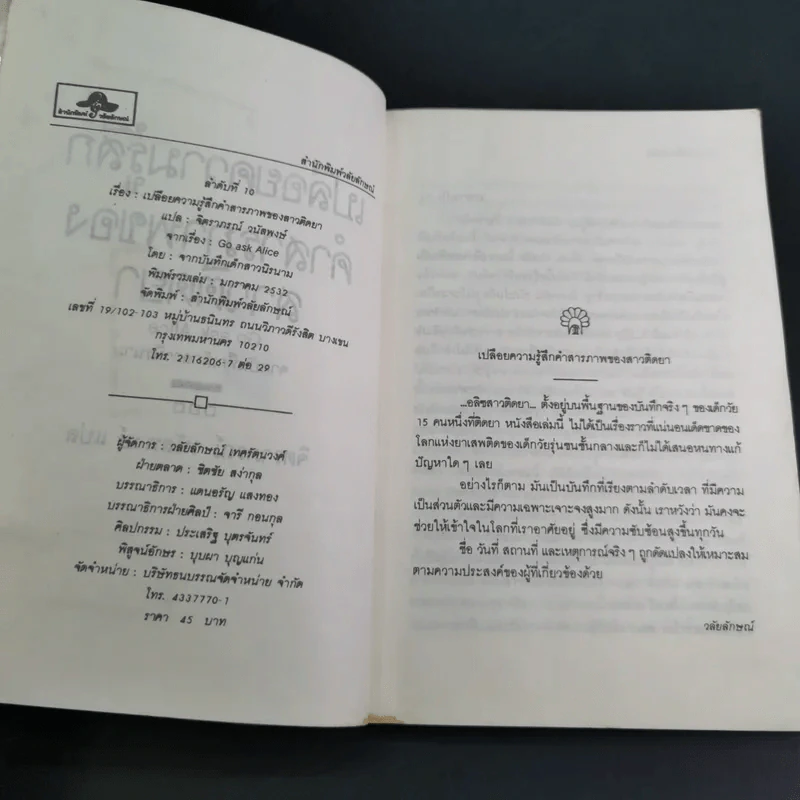 สำนักพิมพ์ วลัยลักษณ์
สำนักพิมพ์วลัยลักษณ์
ลำดับที่ 10
เรื่อง : เปลือยความรู้สึกคำสารภาพของสาวติดยา
แปล : จิตราภรณ์ วนัสพงษ์
จากเรื่อง : Go ask Alice
โดย : จากบันทึกเด็กสาวนิรนาม
พิมพ์รวมเล่ม : มกราคม 2532
จัดพิมพ์ : สำนักพิมพ์วลัยลักษณ์
เลขที่ 19/102-103 หมู่บ้านธนินทร ถนนวิภาวดีรังสิต บางเขน
กรุงเทพมหานคร 10210
โทร. 2116206-7 ต่อ 29
ผู้จัดการ : วลัยลักษณ์ เทศรัตนวงศ์
ฝ่ายตลาด : ชิตชัย สง่ากุล
บรรณาธิการ : แดนอรัญ แสงทอง
บรรณาธิการฝ่ายศิลป์ : จารี กอนกุล
ศิลปกรรม : ประเสริฐ บุตรจันทร์
พิสูจน์อักษร : บุบผา บุญแก่น
จัดจำหน่าย : บริษัทธนบรรณจัดจำหน่าย จำกัด
โทร. 4337770-1
ราคา 45 บาท
เปลือยความรู้สึกคำสารภาพของสาวติดยา
...อลิซสาวติดยา... ตั้งอยู่บนพื้นฐานของบันทึกจริง ๆ ของเด็กวัย
15 คนหนึ่งที่ติดยา หนังสือเล่มนี้ ไม่ได้เป็นเรื่องราวที่แน่นอนเด็ดขาดของ
โลกแห่งยาเสพติดของเด็กวัยรุ่นชนชั้นกลางและก็ไม่ได้เสนอหนทางแก้
ปัญหาใด ๆ เลย
อย่างไรก็ตาม มันเป็นบันทึกที่เรียงตามลำดับเวลา ที่มีความ
เป็นส่วนตัวและมีความเฉพาะเจาะจงสูงมาก ดังนั้น เราหวังว่า มันคงจะ
ช่วยให้เข้าใจในโลกที่เราอาศัยอยู่ ซึ่งมีความซับซ้อนสูงขึ้นทุกวัน
ชื่อ วันที่ สถานที่ และเหตุการณ์จริง ๆ ถูกดัดแปลงให้เหมาะสม
ตามความประสงค์ของผู้ที่เกี่ยวข้องด้วย
วลัยลักษณ์